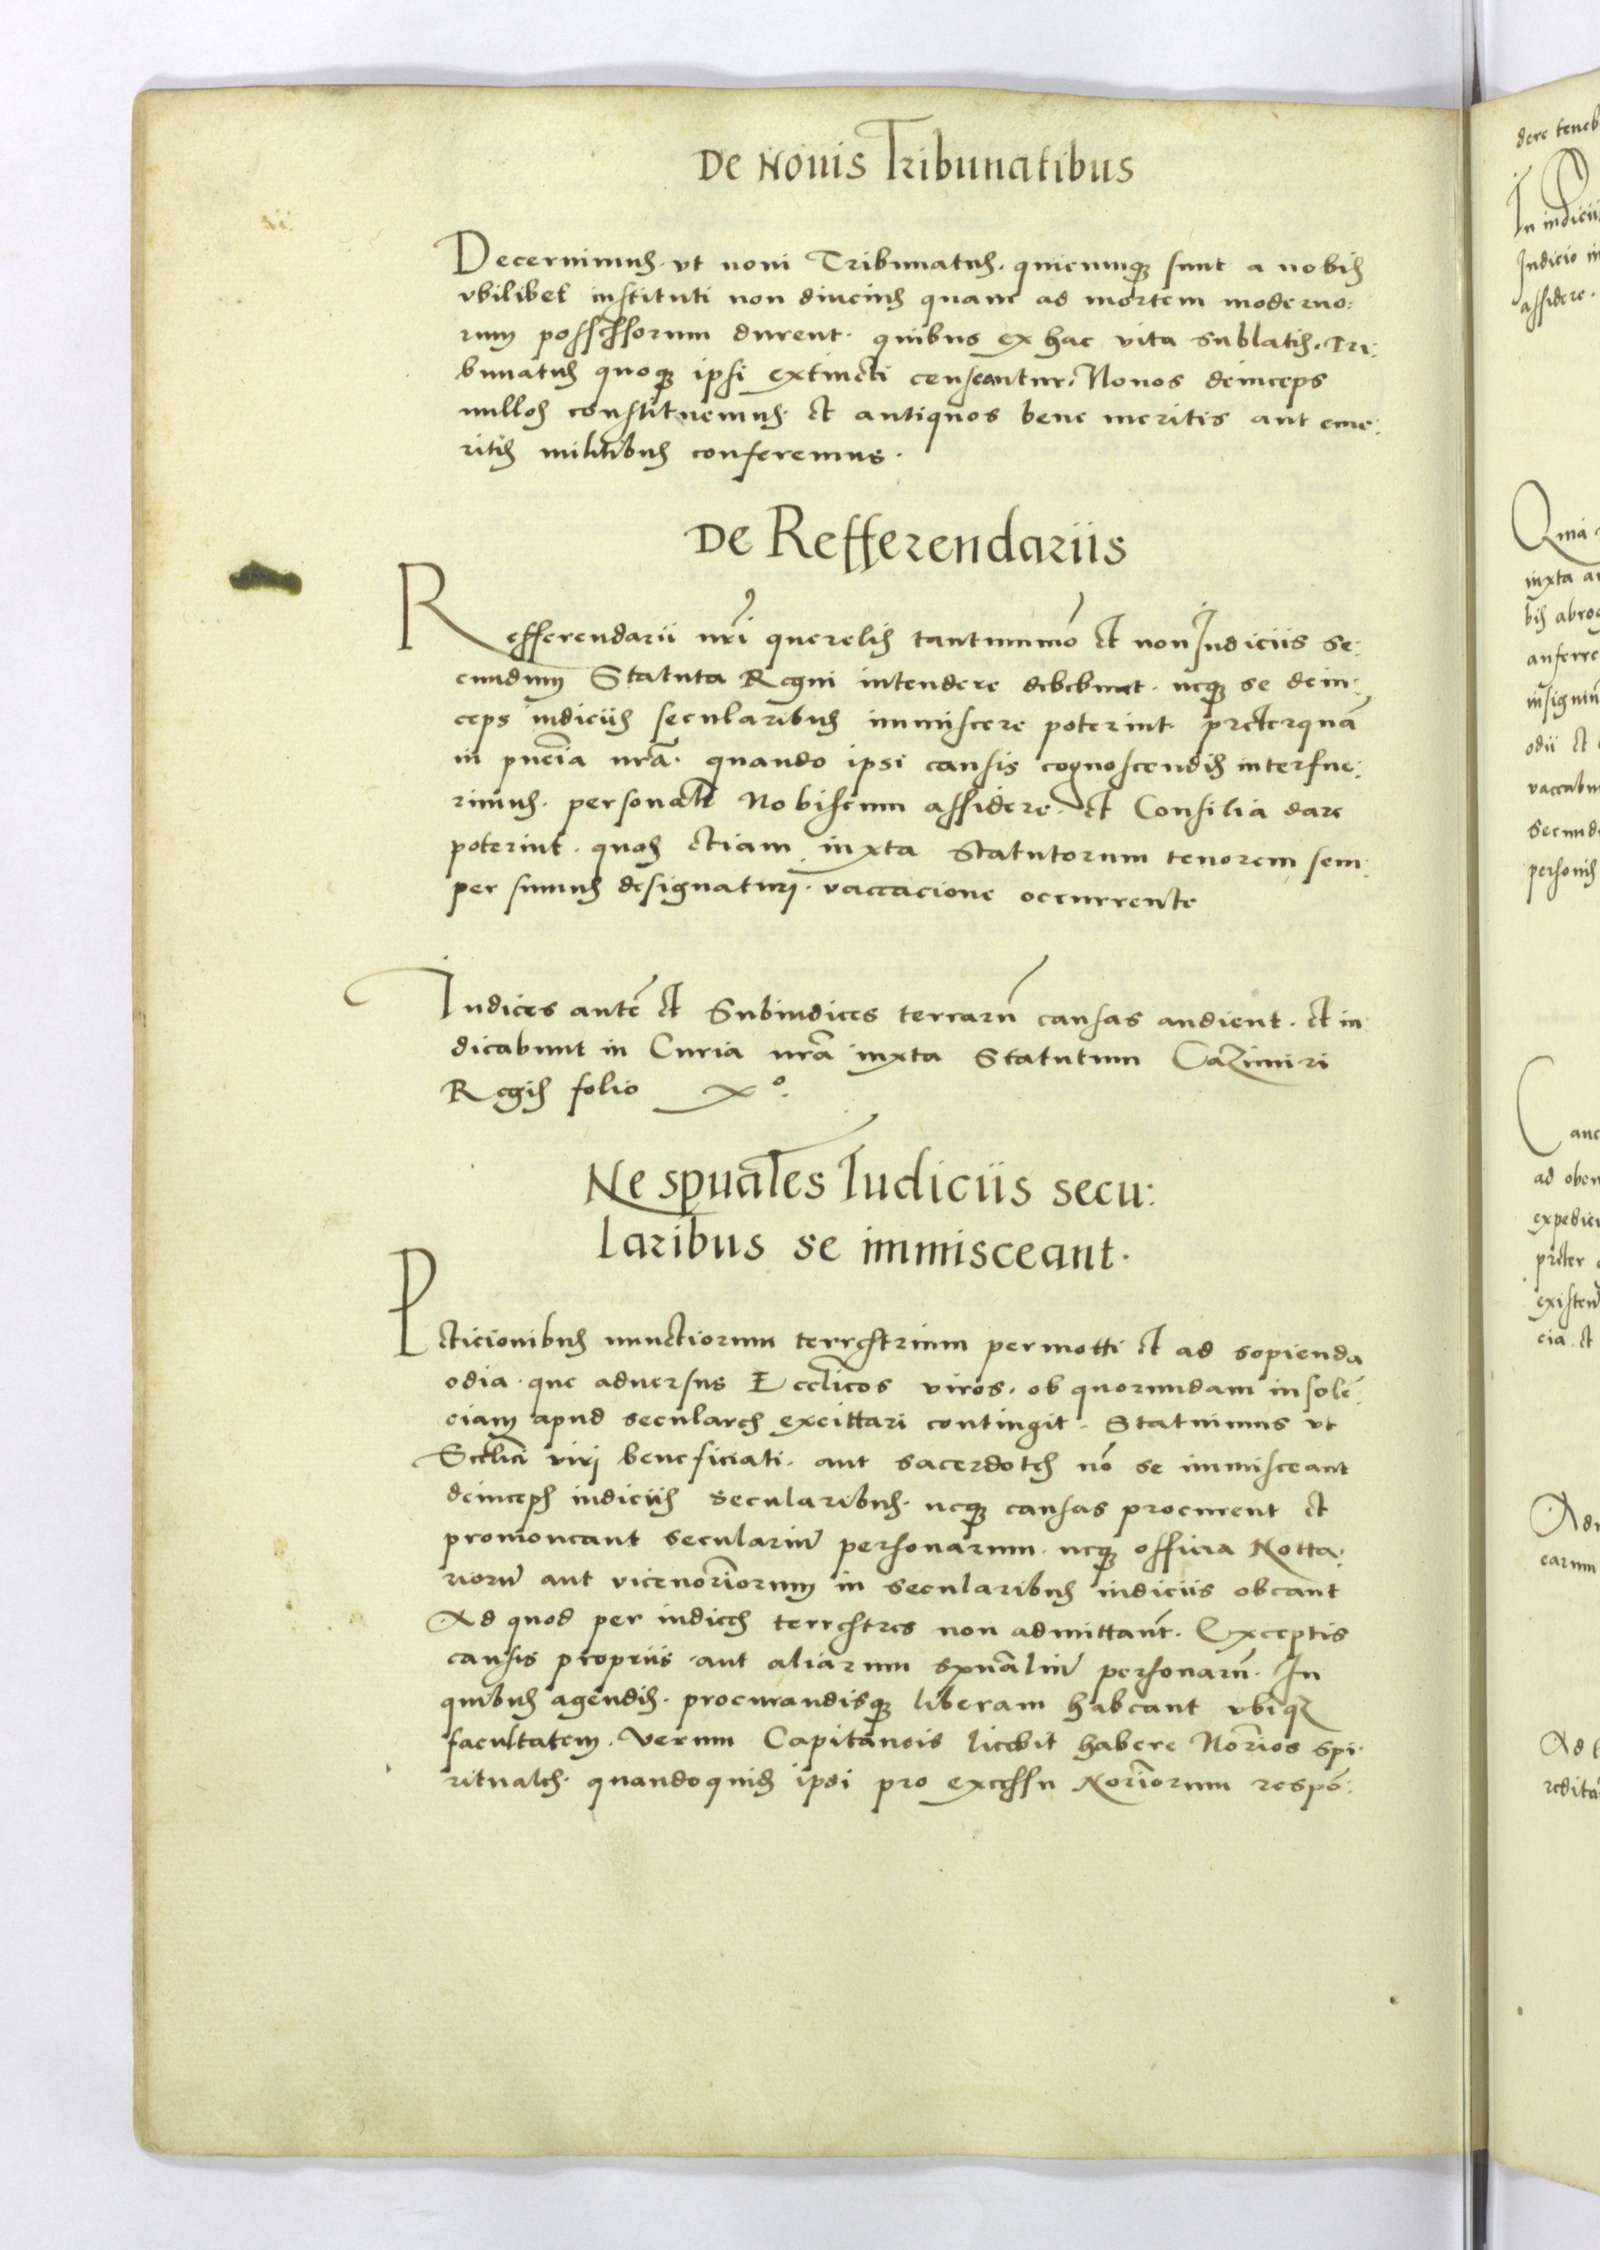 De Nouis Tribunatibus
Decernimus. vt noui Tribunatus. quicunque sunt a nobis
vbilibet instituti non diucius quam ad mortem moderno:
rum possessorum durent. quibus ex hac vita sublatis. Tri:
bunatus quoque ipsi extincti censeantur. Nouos deinceps
nullos constituemus. et antiquos bene meritis aut eme:
ritis militibus conferemus.
De Refferendariis
Refferendarii nri querelis tantummo et non Iudiciis se:
cundum Statuta Regni intendere debebunt. neque se dein:
ceps iudiciis secularibus immiscere poterint. preterquã
in pncia nrã. quando ipsi causis cognoscendis interfue:
rimus. personalr Nobiscum assidere. et Consilia dare
poterint. quos etiam iuxta Statutorum tenorem sem:
per sumus designaturi. vaccacione occurrente
Iudices autẽ et Subiudices terrarũ causas audient. et iu
dicabunt in Curia nrã iuxta Statutum Cazimiri
Regis folio xº.
Ne spuales Iudiciis secu:
laribus se immisceant.
Peticionibus nunctiorum terrestrium permotti et ad sopienda
odia. que aduersus Ecclicos viros. ob quorundam insolẽ:
ciam apud seculares excittari contingit. Statuimus vt
Ecclici viri beneficiati. aut sacerdotes nõ se immisceant
deinceps iudiciis secularibus. neque causas procurent et
promoueant seculariũ personarum. neque officia Notta:
riorũ aut vicenoriorum in secularibus iudiciis obeant
Ad quod per iudices terrestres non admittant. Exceptis
causis propriis aut aliarum spualiũ personarũ. In
quibus agendis. procurandisque liberam habeant vbique
facultatem. Verum Capitaneis licebit habere Norios spi:
rituales. quandoquidem ipsi pro excessu Noriorum respõ:
dere teneb
In iudiciis
Iudicio in
assidere.
Quia
iuxta an
bis abrog
auferre
odii et
vaccabun
secundu
personis
Canc
ad oben
expedici
preter
cia. et
earum
Ad